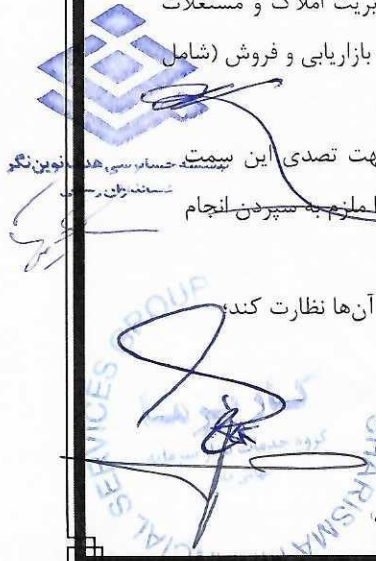 مدیریت املاک و مستغلات
بازاریابی و فروش (شامل
جهت تصدی این سمت
ملزم به سپردن انجام
آن‌ها نظارت کند؛
موسسه حسابرسی هدف نوین نگر
حسابداران رسمی
FINANCIAL SERVICES GROUP
CHARISMA